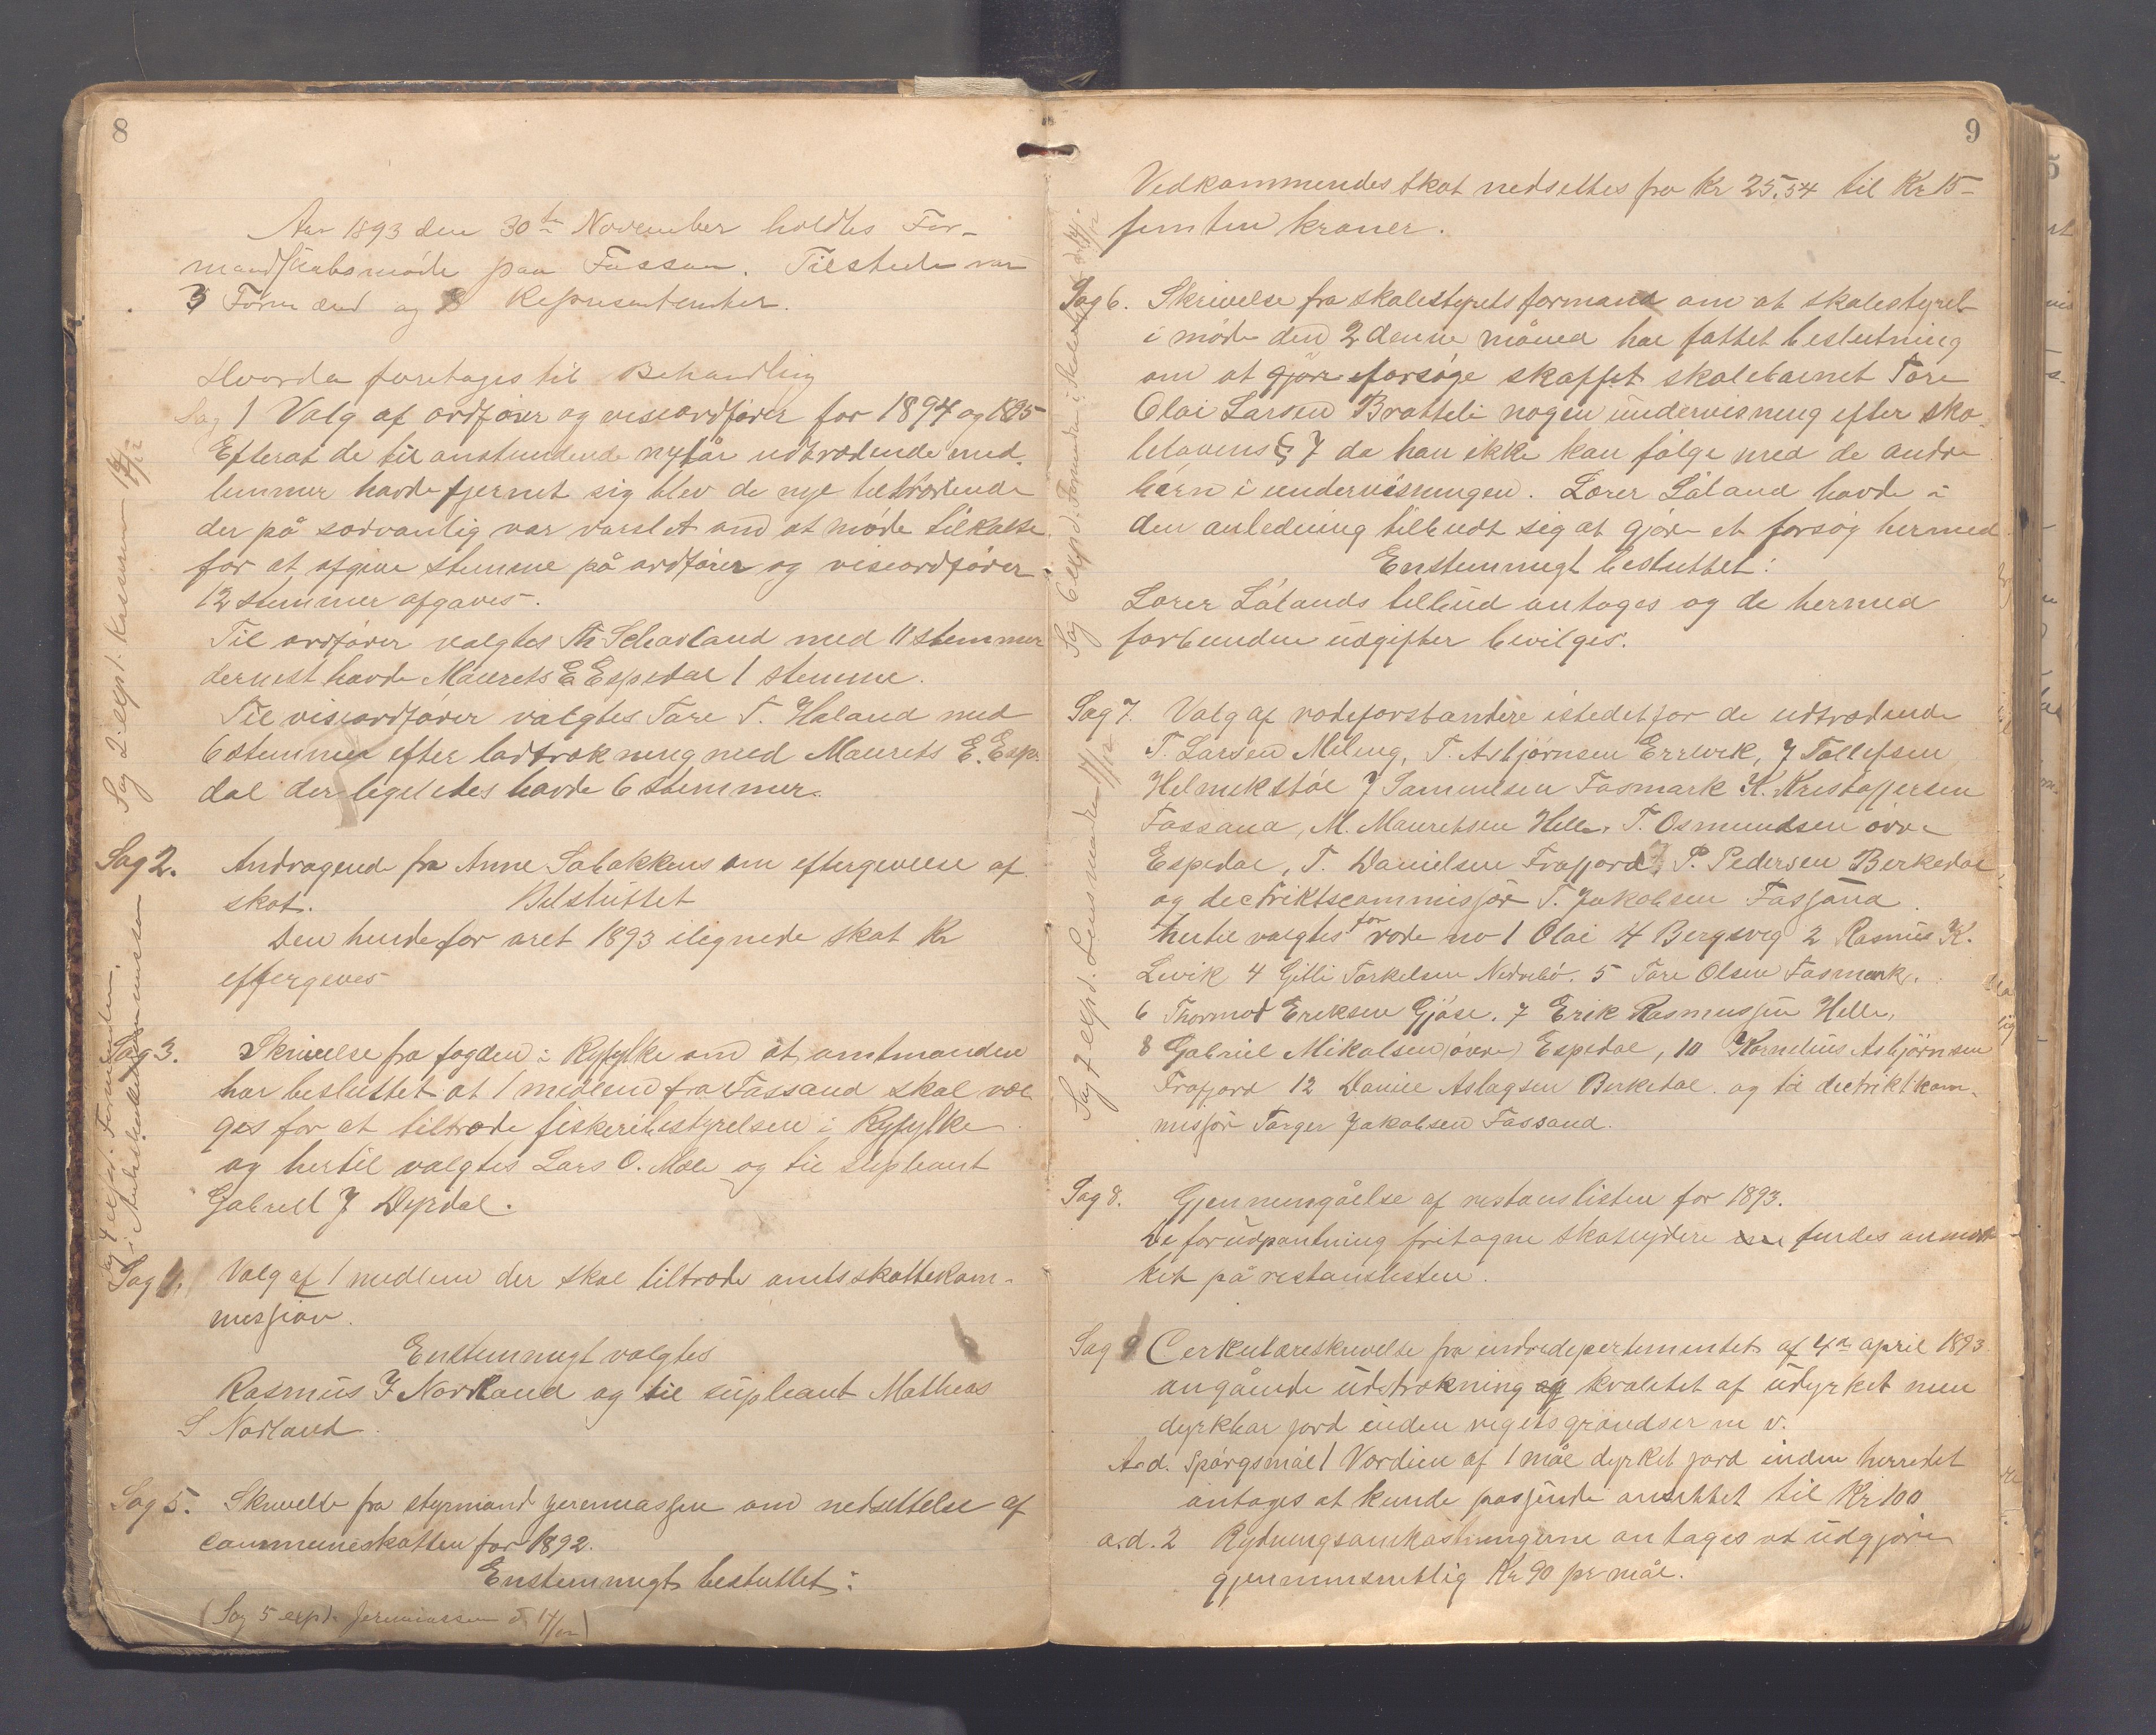 8
Aar 1893 den 30te November holdtes For-
mandskabsmøde paa Fossan. Tilstede var
3 Formænd og 8 Repræsententer.
Hvorda foretoges til Behandling
Sag 1 Valg af ordfører og viseordfører for 1894 og 1895
Efterat de til anstundende nytår udtrædende med-
lemmer havde fjernet sig blev de nye tiltrædende
der på sædvanlig var varslet om at møde tilkalte
for at afgive stemme på ordfører og viseordfører
12 stemmer afgaves.
Til ordfører valgtes Th. Schavland med 11 stemmer
dernest havde Maurets E Espedal 1 stemme.
Til viseordfører valgtes Tore T. Haland med
6 stemmer efter lodtrækning med Maurets E. Esp-
dal der ligeledes havde 6 stemmer.
Sag 2 expd. Kasseren 17/12
Sag 2. Andragende fra Anne Sabakkens om eftergivelse af
skat. Belsluttet
Den hende for året 1893 ilignede skat Kr
eftergives
Sag 3. Skrivelse fra fogden i Ryfylke om at amtmanden
har besluttet at 1 medlem fra Fossand skal væl-
ges for at tiltræde fiskeribestyrelsen i Ryfylke
og hertil valgtes Lars O. Mæle og til supleant
Gabriel J Dyrdal.
Sag 4 expd. Formanden
i Amtsskattekommissionen
Sag 4. Valg af 1 medlem der skal tiltræde amtsskattekom-
missjon.
Enstemmigt valgtes
Rasmus J Nordland og til supleant Mathias
S Nodland.
Sag 5. Skrivelse fra styrmand Jeremiassen om nedsettelse af
Communeskatten for 1892.
Enstemmigt besluttet:
(Sag 5 expd. Jeremiassen d. 17/12)
9
Vedkommendes skat nedsettes fra Kr 25,54 til Kr 15-
femten kroner.
Sag 6 expd. Formanden i Skolestyret d. 17/12
Sag 6. Skrivelse fra skolestyrets formand om at skolestyret
i møde den 2 denne måned har fattet beslutning
om at gjøre forsøge skaffet skolebarnet Tore
Olai Larsen Bratteli nogen undervisning efter sko-
lelovens § 7 da han ikke kan følge med de andre
børn i undervisningen. Lærer Låland havde i
den anledning tilbudt sig at gjøre et forsøg hermed
Enstemmigt besluttet:
Lærer Lålands tilbud antages og de hermed
forbundne udgifter bevilges.
Sag 7 expd. Lensmanden 17/12
Sag 7. Valg af rodeforstandere istedetfor de udtrædende
T. Larsen Meling, T. Asbjørnsen Errevik, J Tollefsen
Helmikstøl J Samuelsen Fosmark K. Kristoffersen
Fossana, M. Mauretsen Helle, T. Osmundsen øvre
Espedal, T. Danielsen Frafjord, P. Pedersen Berkedal
og dectriktscommisjør T. Jakobsen Fossand.
hertil valgtes for rode no 1 Olai H Bergsvig 2 Rasmus K.
Levik 4 Gitli Torkelsen Nedrebø. 5 Tore Olsen Fosmark.
6 Thormod Eriksen Gjøse. 7 Erik Rasmussen Helle,
8 Gabriel Mikalsen (øvre) Espedal, 10 Kornelius Asbjørnsen
Frafjord 12 Daniel Aslagsen Berkedal og til dectriktkom-
misjør Torger Jakobsen Fossand.
Sag 8. Gjennemgåelse af restanslisten for 1893.
De for udpantning fritagne skatydere findes anmer-
ket på restanslisten.
Sag 9 Cerkulæreskrivelse fra indredepartementet af 4de april 1893
angående udstrækning og kvalitet af udyrket men
dyrkbar jord inden rigets grændser m v.
A.d. Spørgsmål 1 Værdien af 1 mål dyrket jord inden herredet
antages at kunde passende ansettet til Kr 100
a.d. 2 Rydningsomkostningerne antages at udgjøre
gjennemsnitlig Kr 90 pr mål.